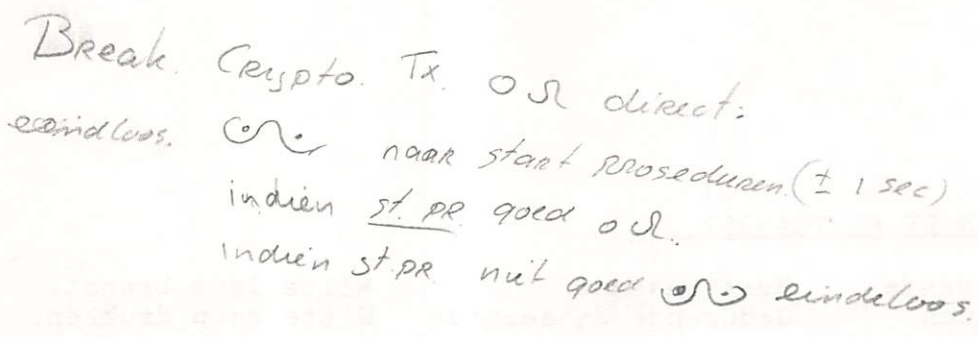 Break. Crypto. Tx. direct:
eindloos. naar start proseduren. (± 1 sec)
indien st. PR goed
indien st. PR. niet goed eindeloos.